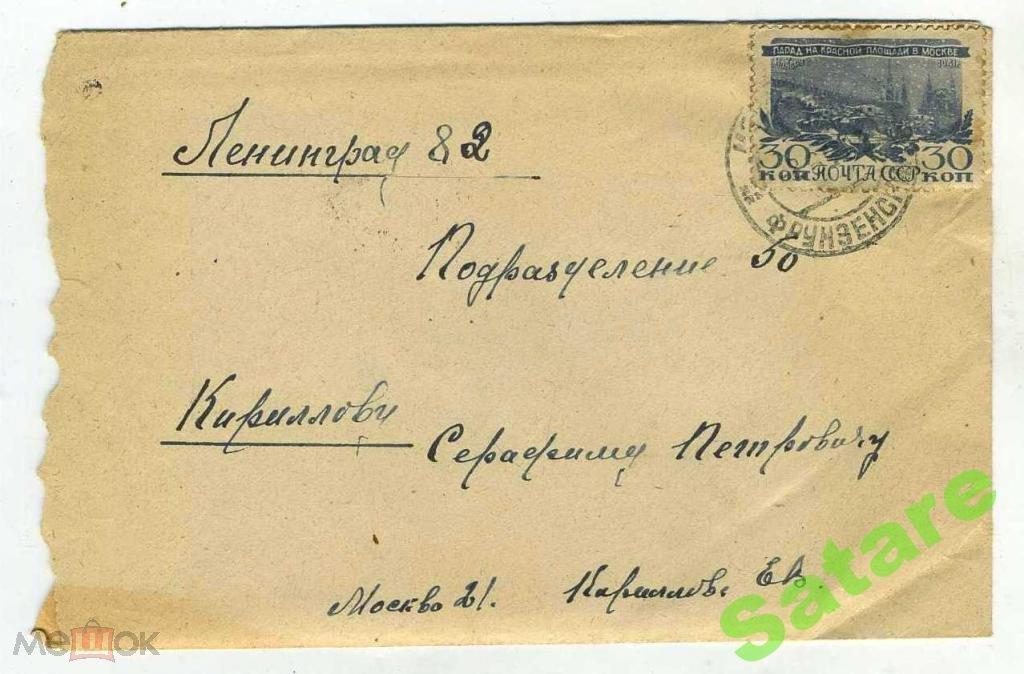 ПАРАД НА КРАСНОЙ ПЛОЩАДИ В МОСКВЕ
30 30
КОП ПОЧТА СССР КОП
ФРУНЗЕНСК
Ленинград 82
Подразделение 50
Кириллову
Серафиму Петровичу
Москва 21. Кириллова Е.В.
Satare
мешок